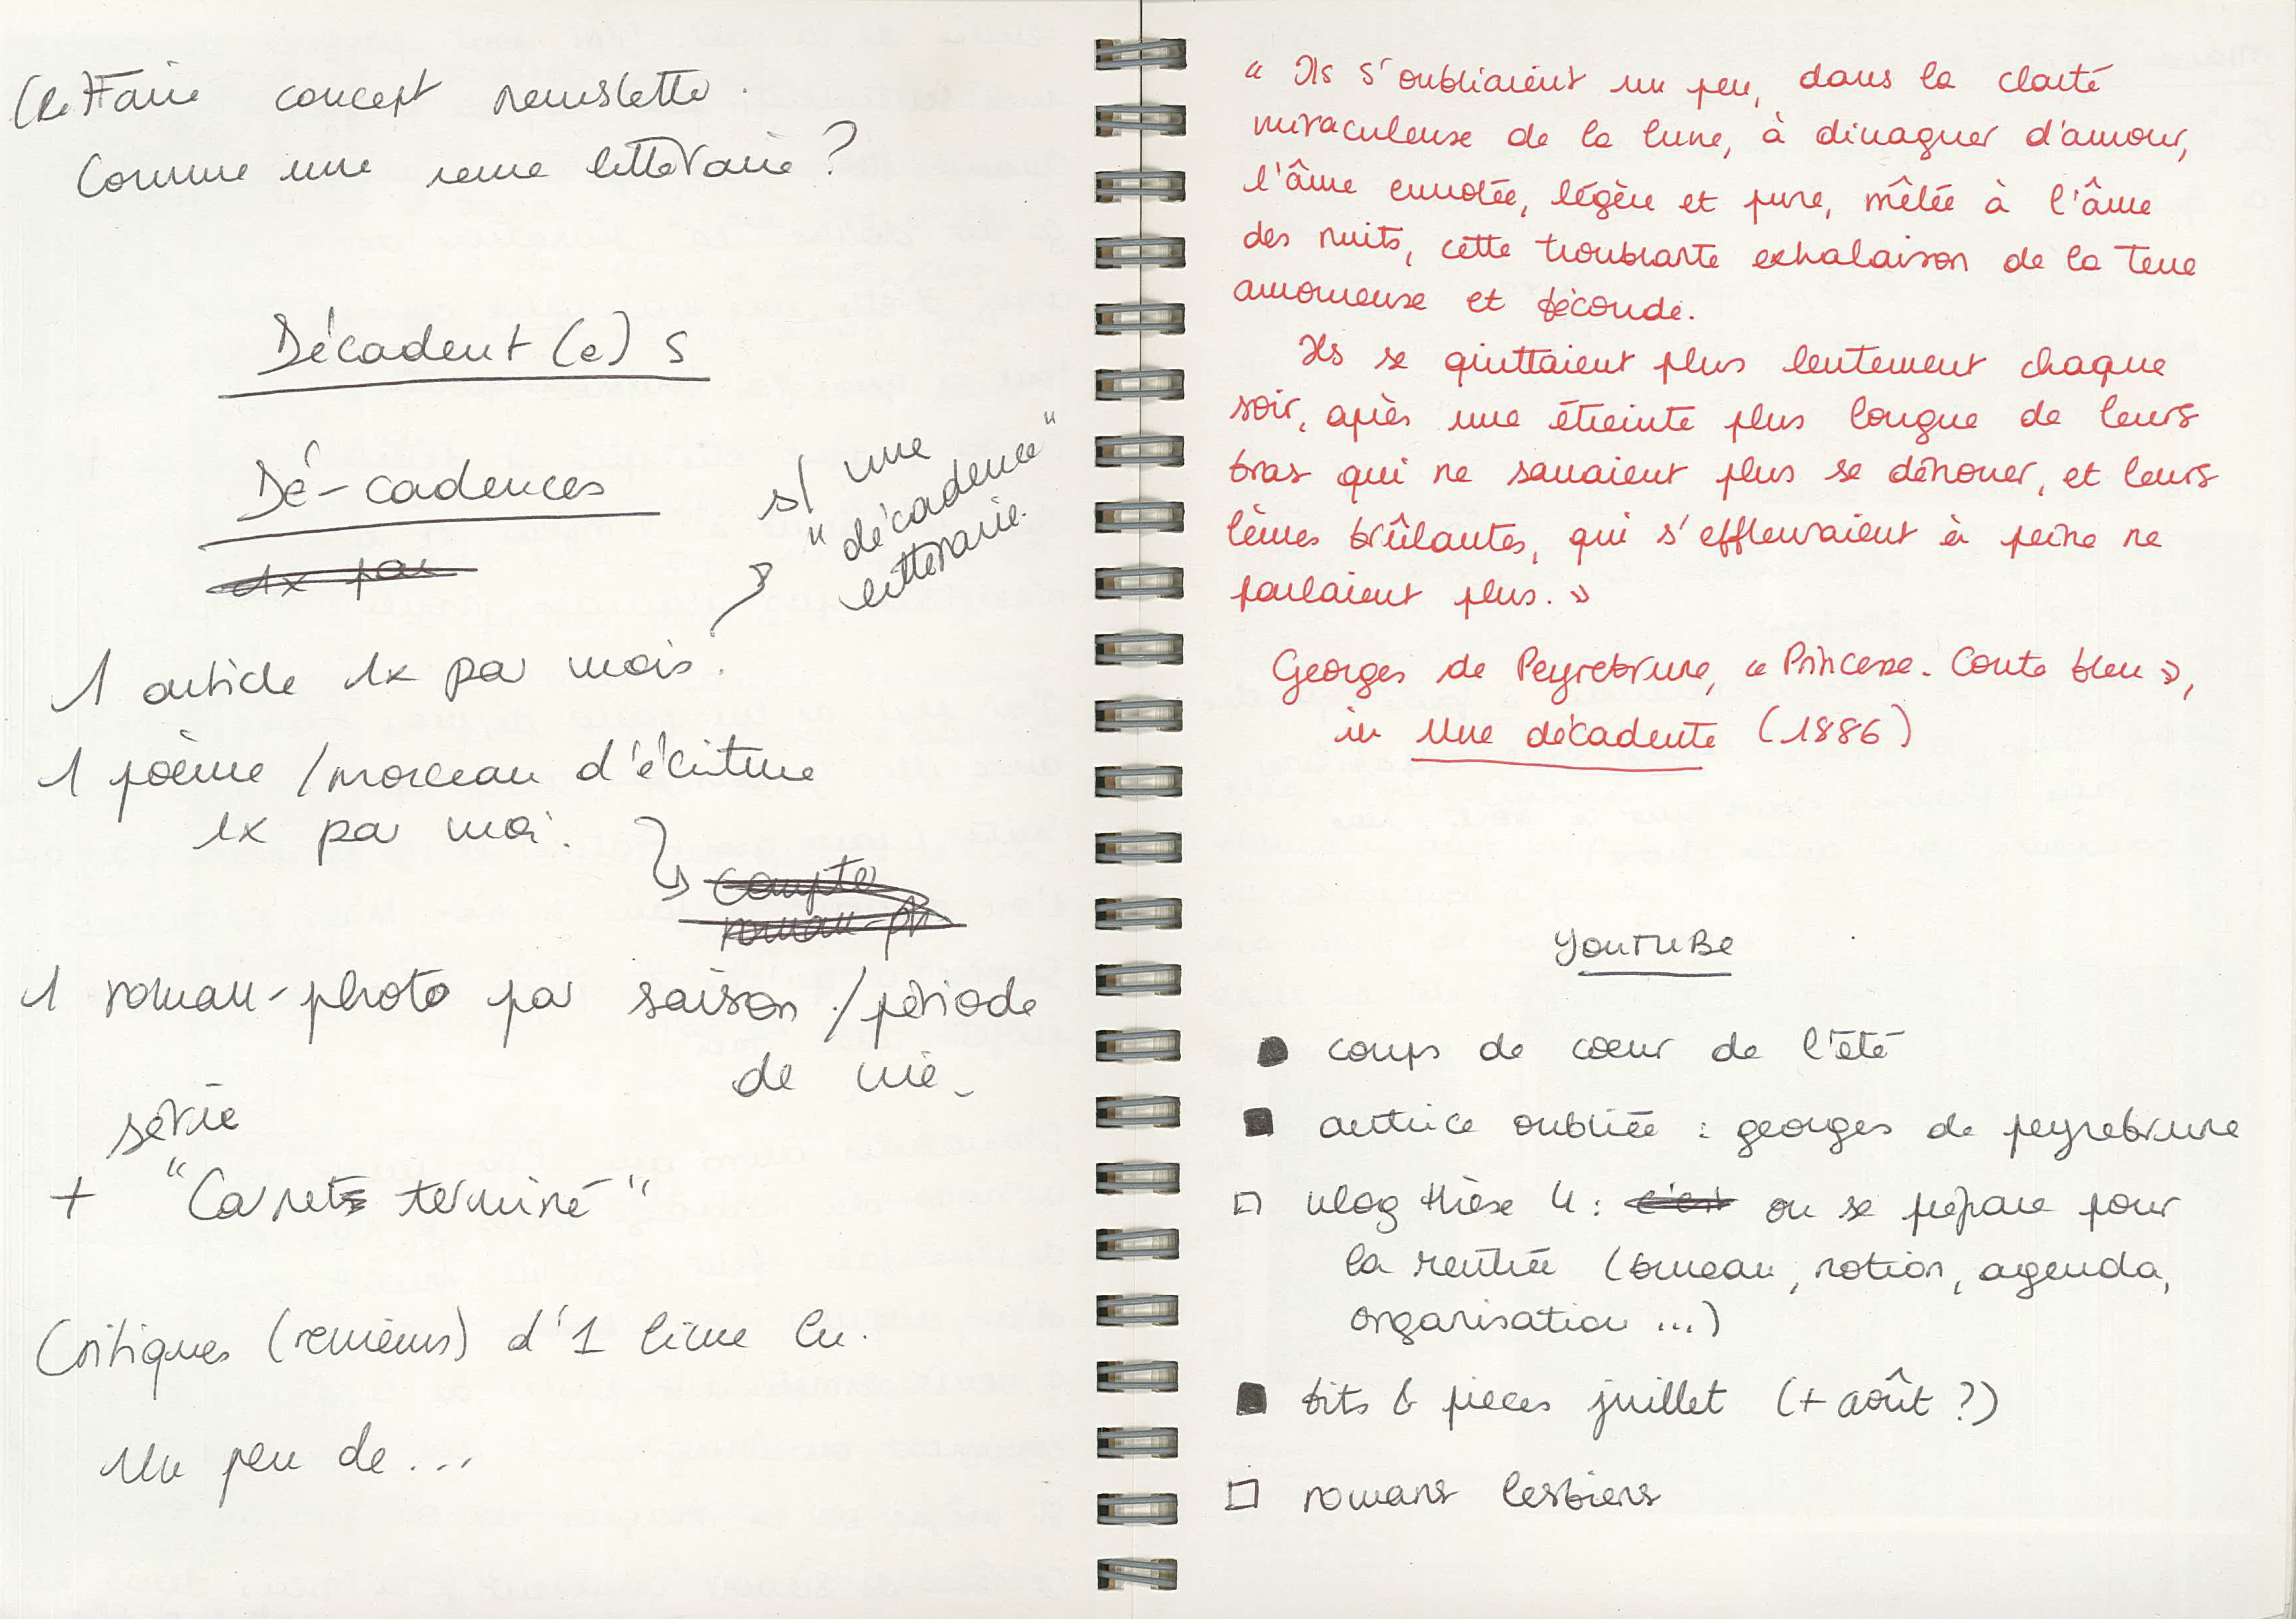 (Re)Faire concept newsletter.
Comme une revue littéraire ?
Décadent(e)s
Dé-cadences
s/ une
"décadence"
littéraire.
1x par
1 article 1x par mois.
1 poème / morceau d'écriture
1x par moi.
compte
roman-ph
1 roman-photo par saison / période
de vie.
série
+ "Carnets terminé"
Critiques (reviews) d'1 livre lu.
Un peu de ...
« Ils s'oubliaient un peu, dans la clarté
miraculeuse de la lune, à divaguer d'amour,
l'âme envolée, légère et pure, mêlée à l'âme
des nuits, cette troublante exhalaison de la terre
amoureuse et féconde.
Ils se quittaient plus lentement chaque
soir, après une étreinte plus longue de leurs
bras qui ne savaient plus se dénouer, et leurs
lèvres brûlantes, qui s'effleuraient à peine ne
parlaient plus. »
Georges de Peyrebrune, « Princesse. Conte bleu »,
in Une décadente (1886)
YouTuBe
coups de cœur de l'été
autrice oubliée : georges de peyrebrune
vlog thèse 4 : c'est on se prépare pour
la rentrée (bureau, notion, agenda,
organisation ...)
bits & pieces juillet (+ août ?)
romans lesbiens